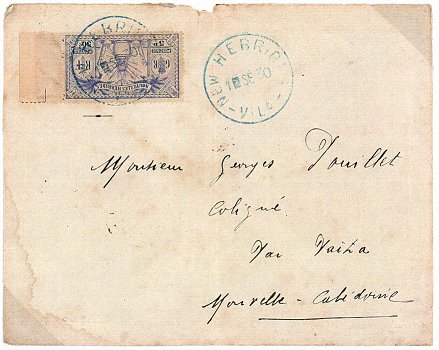 NEW HEBRIDES
SE 30
VILA
Monsieur Georges Pouillet
Coligné
Par Païta
Nouvelle-Calédonie